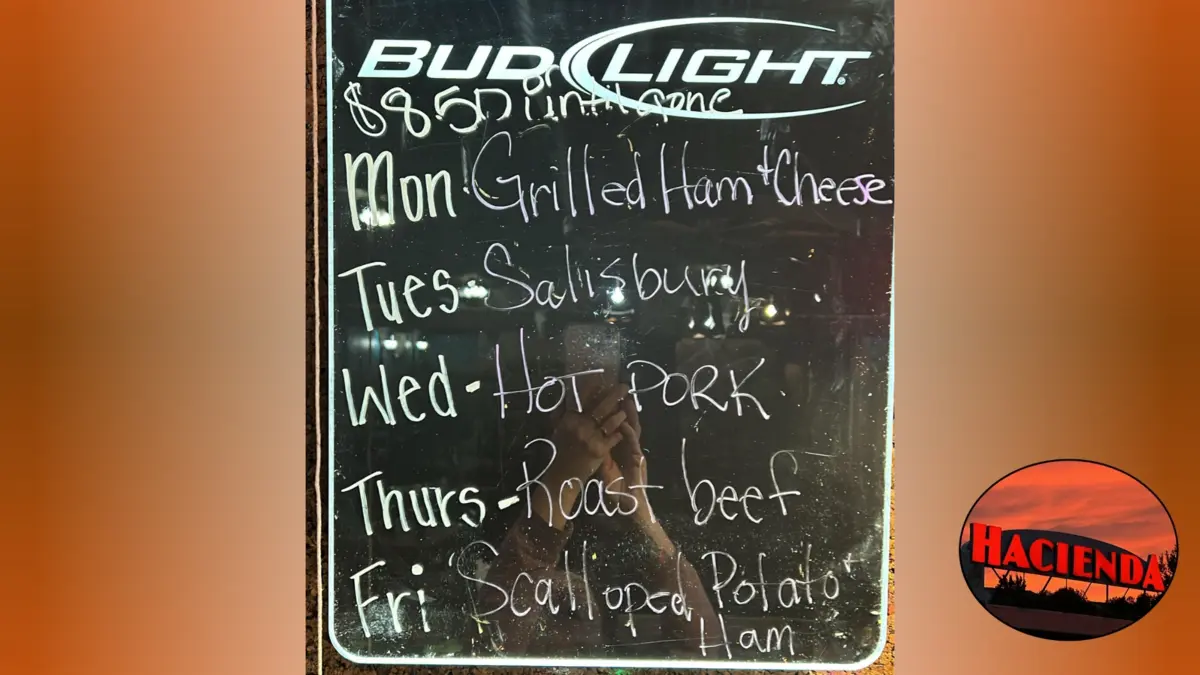 BUD LIGHT
$8.50 or until gone
Mon Grilled Ham + Cheese
Tues - Salisbury
Wed - HOT PORK
Thurs - Roast beef
Fri Scalloped Potato +
Ham
HACIENDA